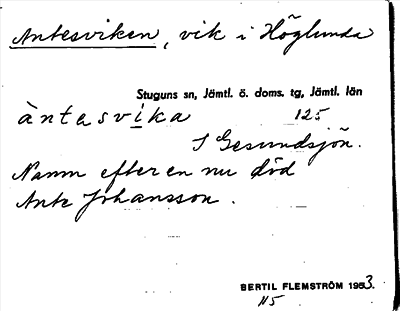 Antesviken, vik i Höglunda
Stuguns sn, Jämtl. ö. doms. tg, Jämtl. län
àntasvika 125
I Gesundsjön.
Namn efter en nu död
Ante Johansson.
BERTIL FLEMSTRÖM 1953.
115